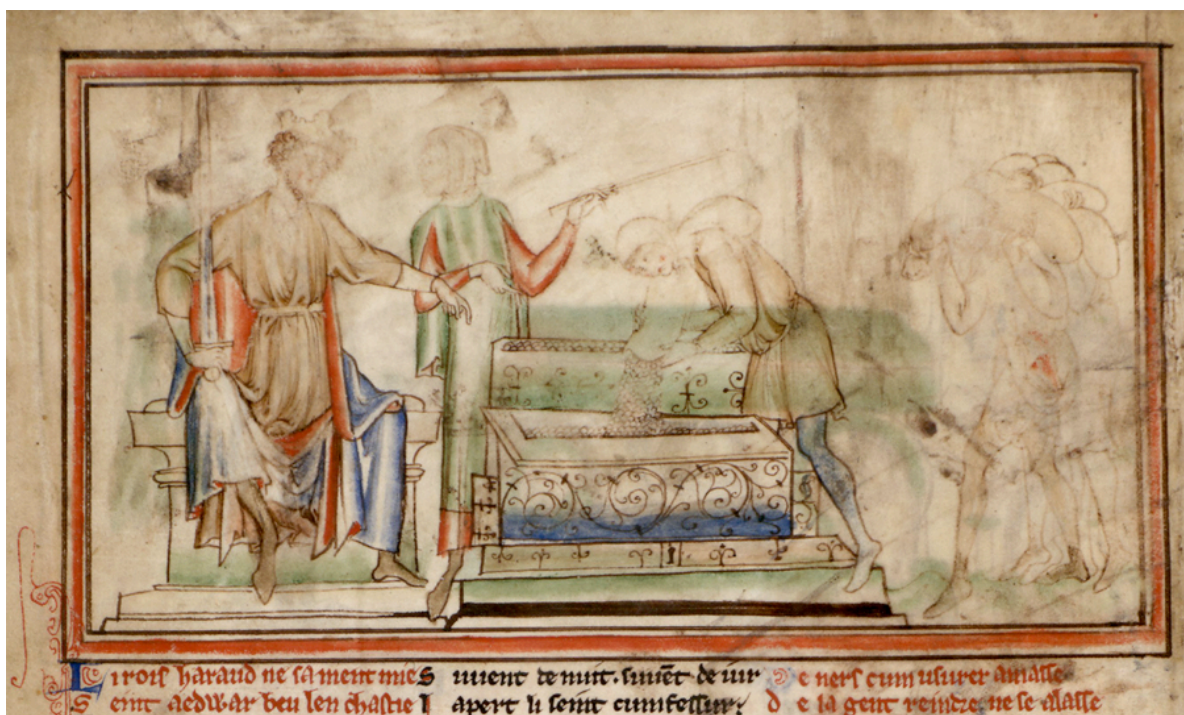 Li rois haraud ne sament mie
Seint aedwar beu len chastie
S uuent de nuit. suuẽt de iur
I apert li seint cumfessur;
De ners cum usurer amasse
De la gent reindre ne se alasse